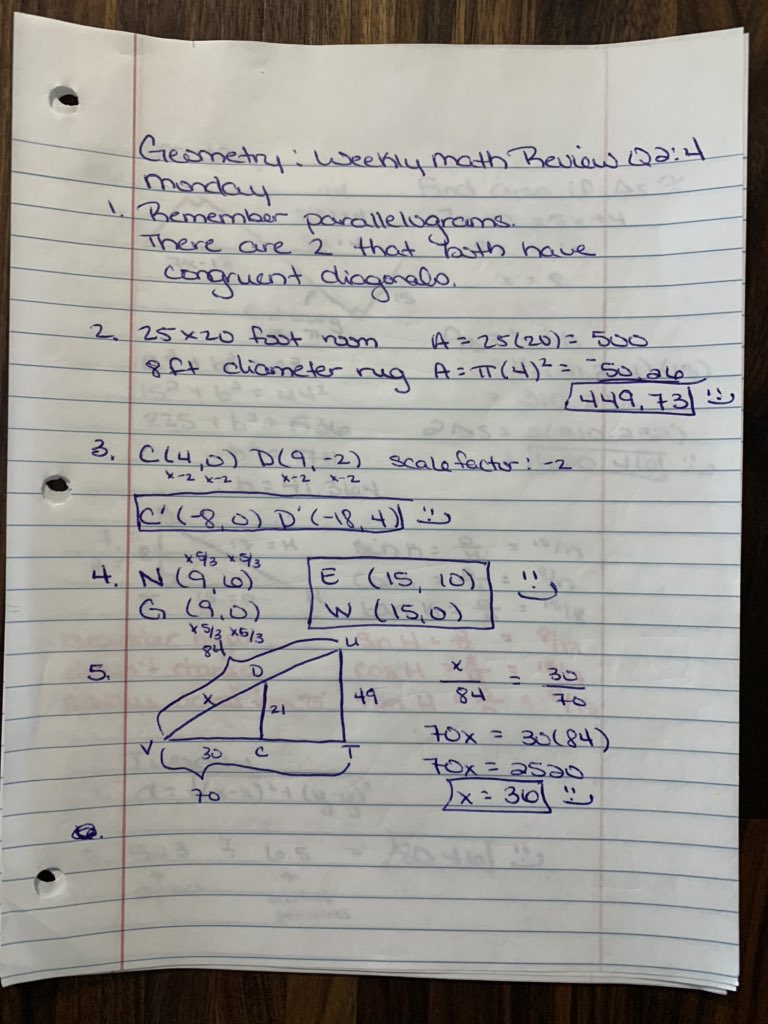 Geometry: Weekly math Review Q2:4
monday
1. Remember parallelograms.
There are 2 that both have
congruent diagonals.
2. 25x20 foot room A = 25(20) = 500
8ft diameter rug A = π(4)² = -50.26
449.73
3. C(4,0) D(9,-2) scale factor: -2
x-2 x-2 x-2 x-2
C'(-8,0) D'(-18,4)
x5/3 x5/3
4. N (9,6) E (15, 10)
G (9,0) W (15,0)
x5/3 x5/3
5. 84 U
D x/84 = 30/70
x 21 49
70x = 30(84)
V 30 C T
70x = 2520
70 x = 36
6.